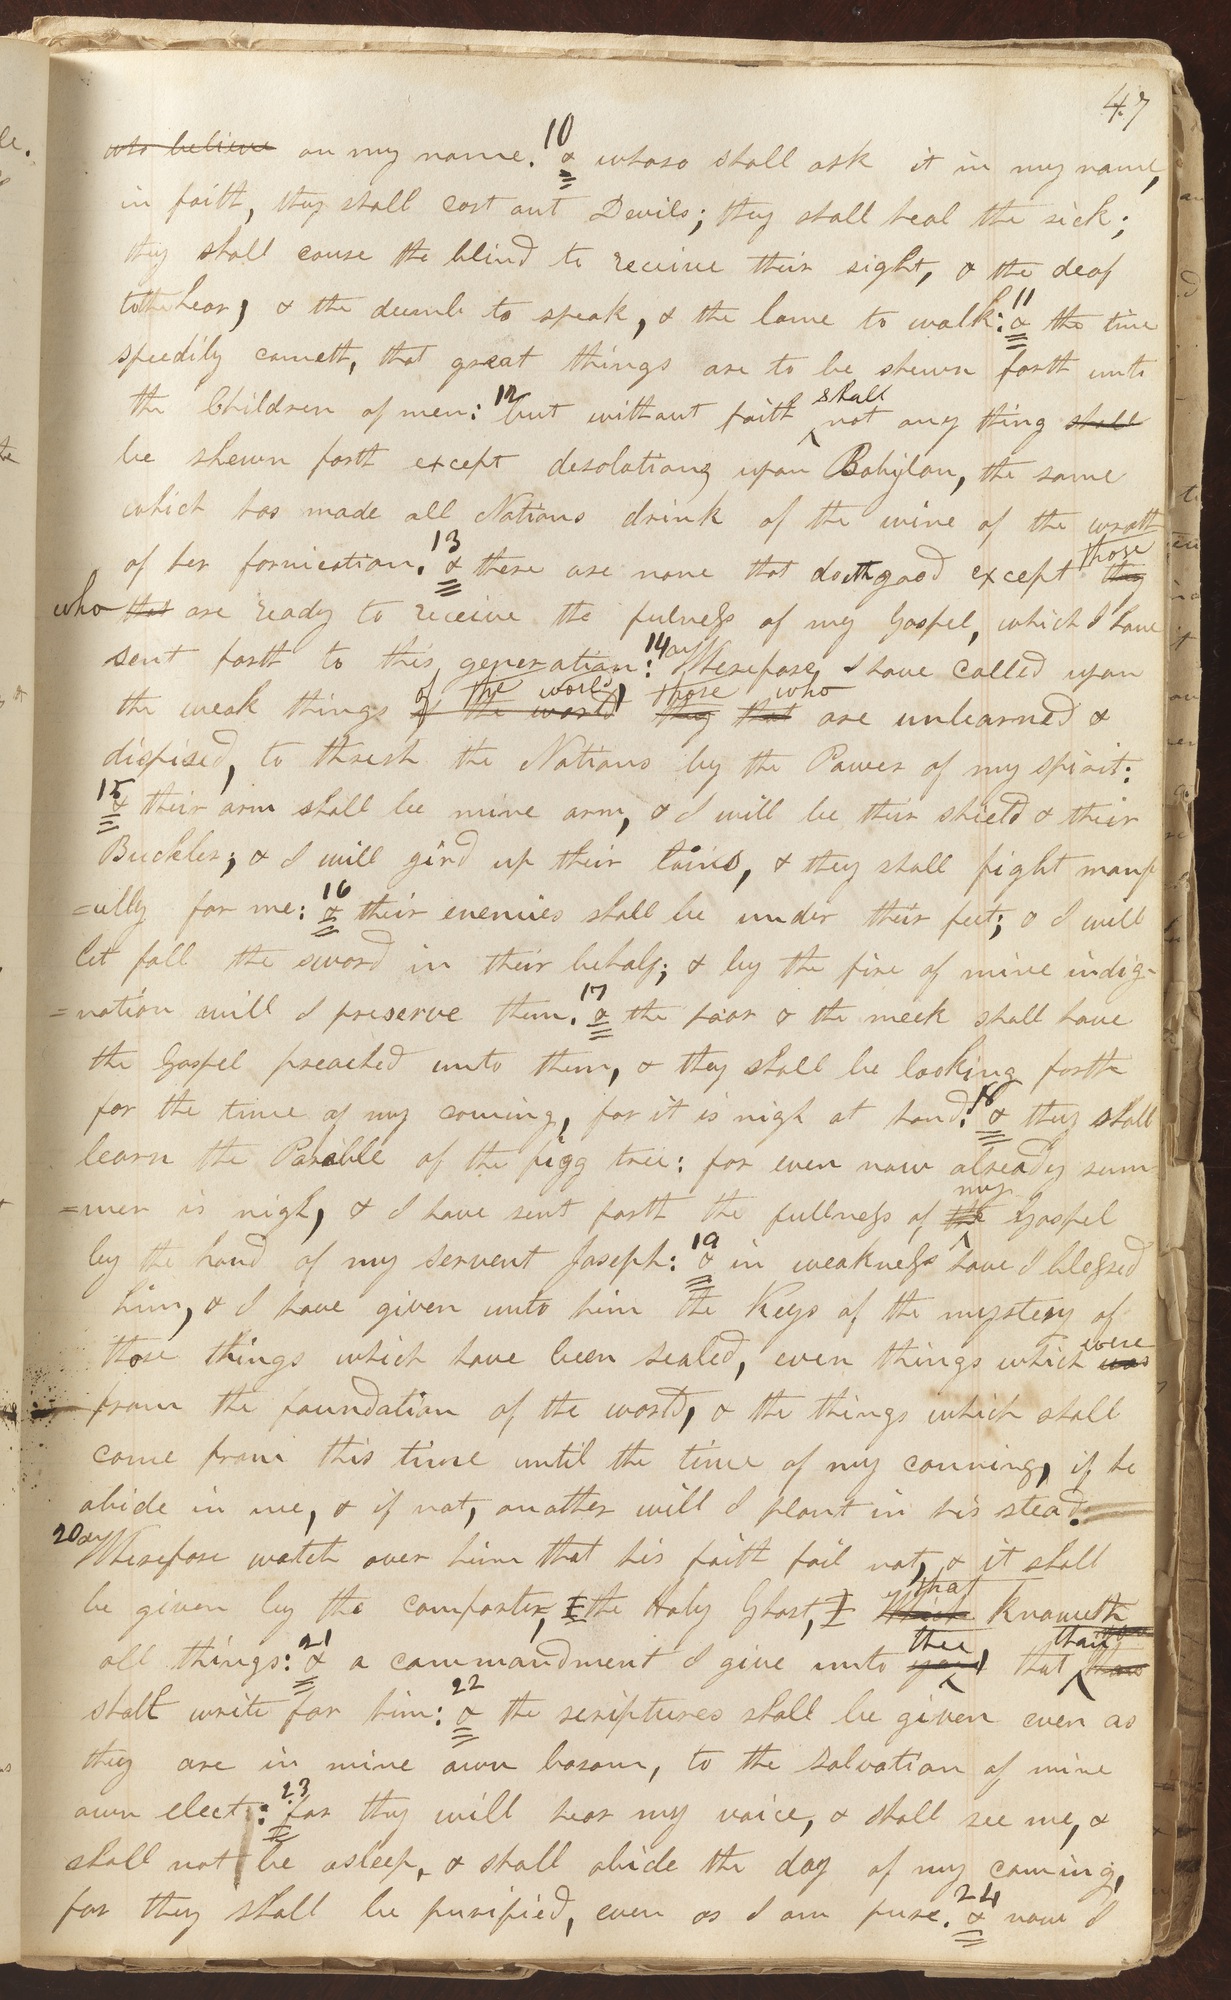 47
who believe on my name. 10 & whoso shall ask it in my name,
in faith, they shall cast out Devils; they shall heal the sick;
they shall cause the blind to receive their sight, & the deaf
to hear, & the dumb to speak, & the lame to walk: 11 & the time
speedily cometh, that great things are to be shewn forth unto
the Children of men: 12 but without faith shall not any thing shall
be shewn forth except desolations upon Babylon, the same
which has made all Nations drink of the wine of the wrath
of her fornication. 13 & there are none that doeth good except those they
who that are ready to receive the fulness of my Gospel, which I have
sent forth to this generation: 14 Wherefore, I have called upon
the weak things of the world, of the world those they who that are unlearned &
dispised, to thresh the Nations by the Power of my spirit:
15 & their arm shall be mine arm, & I will be their shield & their
Buckler; & I will gird up their loins, & they shall fight manf
=ully for me: 16 & their enemies shall be under their feet; & I will
let fall the sword in their behalf; & by the fire of mine indig-
=nation will I preserve them. 17 & the poor & the meek shall have
the Gospel preached unto them, & they shall be looking forth
for the time of my coming, for it is nigh at hand: 18 & they shall
learn the Parable of the figg tree: for even now already sum
=mer is nigh, & I have sent forth the fullness of my the Gospel
by the hand of my servent Joseph: 19 & in weakness have I blessed
him, & I have given unto him the Keys of the mystery of
those things which have been sealed, even things which were was
from the foundation of the world, & the things which shall
come from this time until the time of my comeing, if he
abide in me, & if not, another will I plant in his stead.
20 Wherefore watch over him that his faith fail not, & it shall
be given by the comforter, the Holy Ghost, that Which knoweth
all things: 21 & a commandment I give unto thee, you that thou
shalt write for him: 22 & the scriptures shall be given even as
they are in mine own bosom, to the salvation of mine
own elect: 23 for they will hear my voice, & shall see me, &
shall not be asleep, & shall abide the day of my coming,
for they shall be purified, even as I am pure. 24 & now I